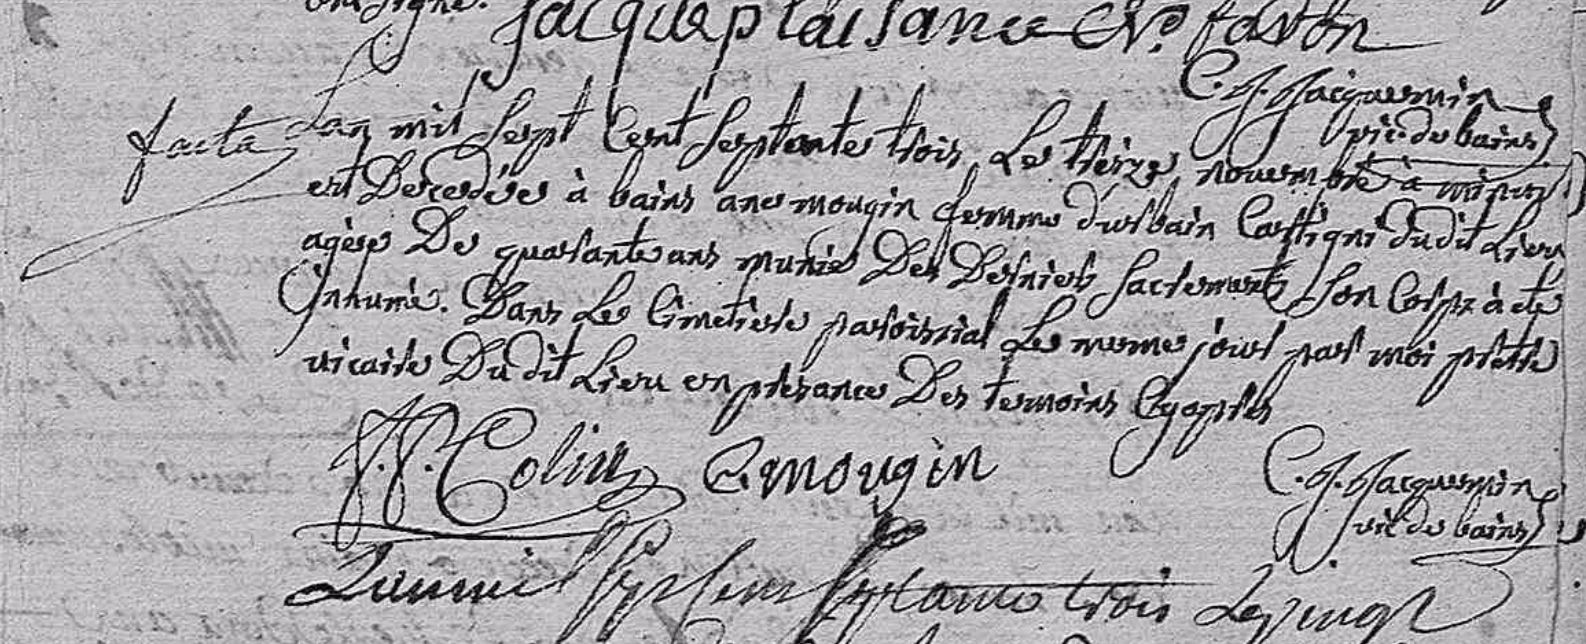 on signé.
jacque plaisance C N. favon
C. J. Jacquemin
vic. de bains
facta
Lan mil sept Cent septente trois Le treize novembre à minuit
est Decedée à bains ane mougin femme d'urbain Costigni dudit Lieu
agèe De quarante ans munie Des Derniers sacrements son Corps à eté
Jnnumé. Dans Le Cimetiere paroissial Le meme jour par moi pretre
vicaire Dudit Lieu en presance Des temoins Cyapres
J. P. Colin
C. mougin
C. J. Jacquemin
vic de bains
Lanmil sept cent septante trois Le vingt